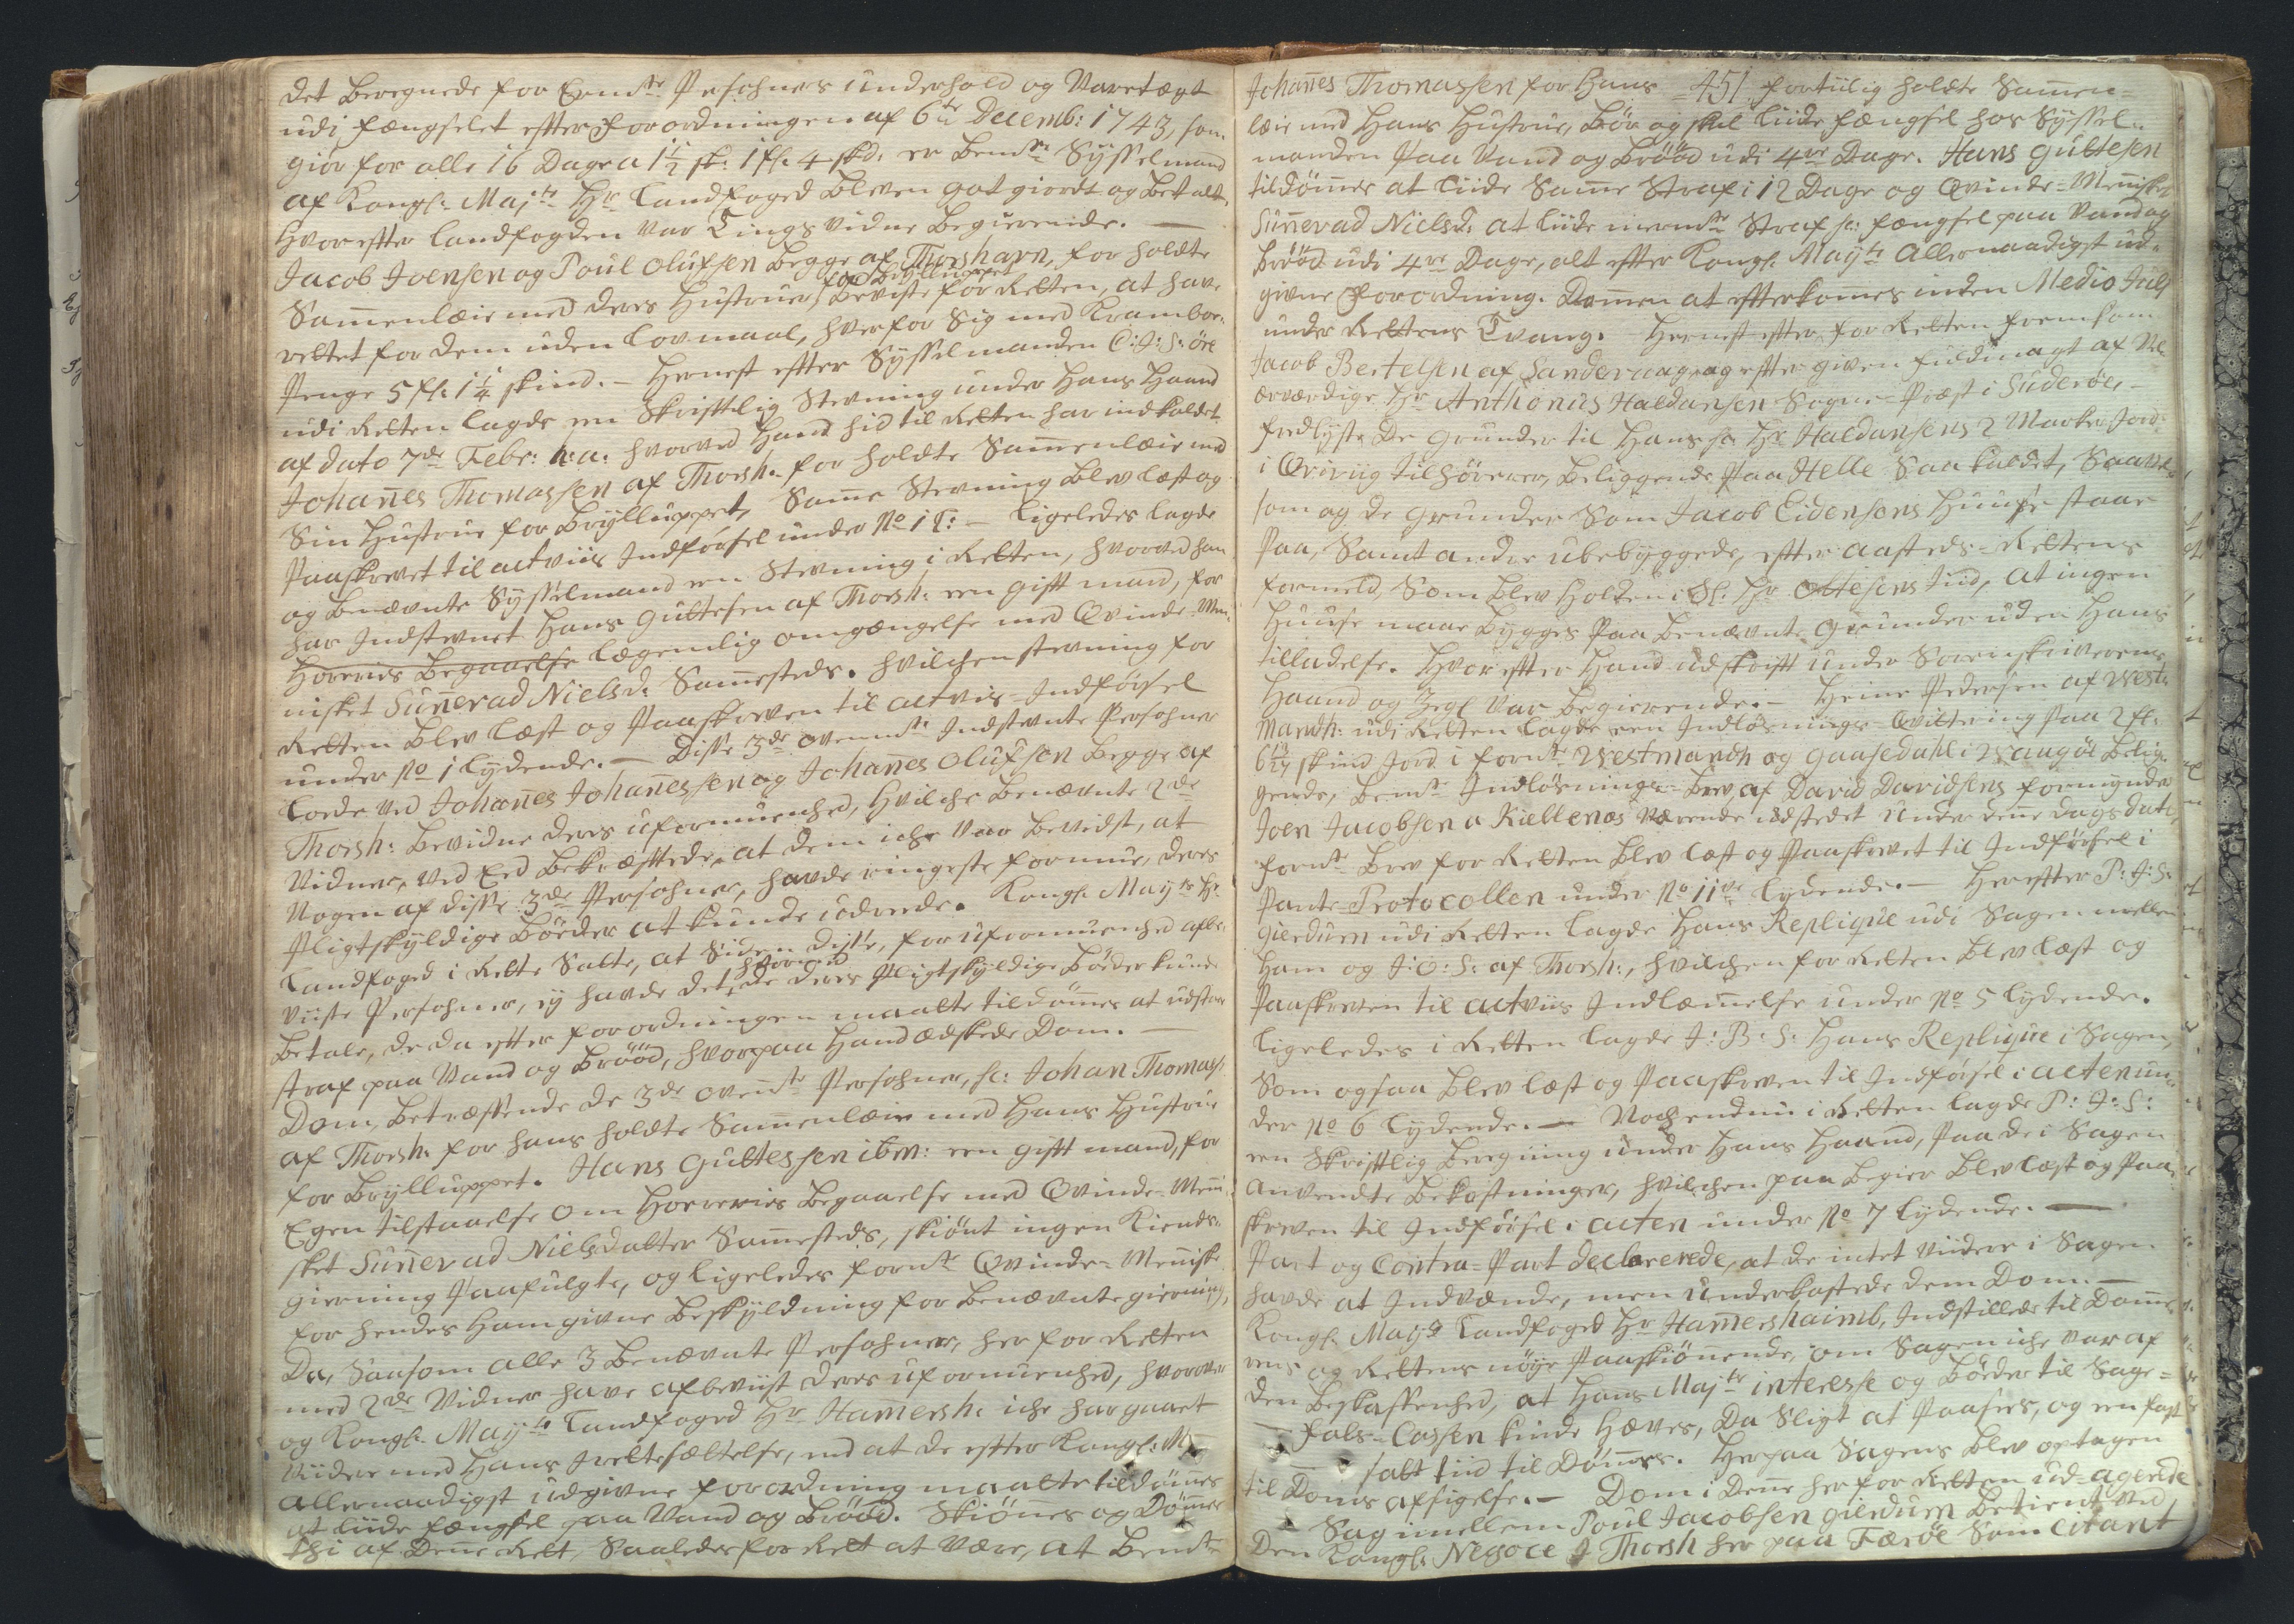 det beregnede for Bemte Persohners underhold og Varetægt
udi fængselet efter Forordningen af 6te Decemb: 1743, som
giør for alle 16 Dage a 1½ sk: 1 fl: 4 skd: er bemte Sysselmand
af Kongl: Majts Hr Landfoged bleven got giordt og betalt,
hvorefter Landfogden var Tingsvidne begierende. —
Jacob Joensen og Poul Olufsen begge af Thorshavn, for holdte
Sam̄enleie med deres Hustruer for Bryllupet beviste for Retten, at have
rettet for dem uden Lovmaal, hver for Sig med Kramboe
Penge 5 fl: 1¼ skind. — Hernest efter Sysselmanden O: J: S: öre
udi Retten lagde en Skriftelig Stevning under Hans Haand
af dato 7de Febr: h: a: hvorved Hand hid til Retten har indkaldet
Johan̄es Thomassen af Thorsh: for holdte Sam̄enleie med
Sin Hustrue for Brylluppet, Sam̄e Stevning blev læst og
Paaskrevet til actviis Indførsel under No 1 T: — Ligeledes lagde
og benævnte Sysselmand en Stevning i Retten, hvorved han
har Indstevnet Hans Gultesen af Thorsh: en gift mand, for
Horeries Begaaelse Legemlig omgængelse med Qvinde-Men-
nisket Sun̄evad Nielsd: Sam̄esteds. hvilchen stevning for
Retten blev læst og Paaskreven til actvis-Indførsel
under No 1 lydende. — Disse 3de ovenmte Indstevnte Persohner
lode ved Johan̄es Johan̄essen og Johan̄es Olufsen begge af
Thorsh: bevidne deres uformuenhed, hvilche benævnte 2de
Vidner, ved Eed bekræfttede, at dem iche var bevidst, at
Nogen af disse 3de Persohner, havde ringeste formue, deres
Pligtskyldige Bøeder at kunde udreede. Kongl: Mayts Hr.
Landfoged i Rette Satte, at Siden disse, for uformuenhed afbe-
viiste Persohner, ej havde det, hvorved de deres Pligtskyldige Bøeder kunde
betale, de da efter forordningen maatte tildøm̄es at udstaae
straf paa Vand og Brööd, hvorpaa Hand ædskede Dom. —
Dom, betreffende de 3de ovenmte Persohner, sc: Johan Thomass:
af Thorsh: for hans holdte Sam̄enleie med Hans Hustrue
for Brylluppet. Hans Gultessen ibm: en gift mand, for
Egen tilstaaelse om Horeries Begaaelse med Qvinde-Men̄i-
sket Sun̄evad Nielsdatter Sam̄esteds, skiönt ingen Kiends-
gierning Paafulgte, og ligeledes fornte Qvinde-Men̄iske
for hendes Ham givne Beskyldning for benævnte gierning,
Da, Saasom alle 3 benævnte Persohner, her for Retten
med 2de Vidner have afbeviist deres uformuenhed, hvorover
og Kongl: Mayts Landfoged Hr Ham̄ersh: iche har gaaet
Viidere med Hans Irettesættelse, end at de efter Kongl: M
allernaadigst udgivne forordning maatte tildøm̄es
at liide fængsel paa Vand og Brööd. Skiön̄es og Døm̄es
thi af Den̄e Rett, Saaledes for Rett at Være, at bemte
Johan̄es Thomassen for Hans 451. fortiilig holdte Sam̄en-
leie med Hans Hustrue, bör og skal liide fængsel hos Syssel-
manden Paa Vand og Brööd udi 4re Dage. Hans Gultesen
tildøm̄es at liide Sam̄e Straf i 12 Dage og Qvinde-Men̄isket
Sun̄evad Nielsd: at liide nevnte Straf sc: fængsel paa Vand og
Brööd udi 4re Dage, alt efter Kongl: Mayts Allernaadigst ud-
givne forordning. Dom̄en at efterkom̄es inden Medio Julij
under Rettens Tvang. Hernest efter for Retten fremkom
Jacob Bertelsen af Sandevaag, og efter given fuldmagt af Vel-
ærværdige Hr Anthonius Haldansen Sogne-Præst i Suderöe, —
fredlyste De Grunder til Hans sc: Hr Haldansens 2 Marker Jord
i Qviviig tilhörer, beliggende Paa Helle Saa kaldet, Saavel
som og de Grunder Som Jacob Eidensens Huuse staar
Paa, Samt andre ubebyggede, efter aasteds-Rettens
formeld, Som blev holden i Sl: Hr Ottesens tiid, at ingen
Huuse maae bygges Paa benævnte Grunder uden Hans
tilladelse. hvorefter Hand udskrift under Sorenskriverens
Haand og Zegl var begierende. — Heine Pedersen af West-
mandh: udi Retten lagde een Indløsnings-Qvittering Paa 2 fl:
6 13/24 skind Jord i fornte Westmandh og Gaasedahl i Waagöe belig-
gende, bemte Indløsnings-Brev, af David Davidsens formynder
Joen Jacobsen a Kieldenæs Værende udstedet under den̄e dags dato,
fornte Brev for Retten blev læst og Paaskrevet til Indførsel i
Pante-Protocollen under No 11ve lydende. — Herefter P: J: S:
Gierdum udi Retten lagde Hans Replique udi Sagen mellem
Ham og J: O: S: af Thorsh:, hvilchen for Retten blev læst og
Paaskreven til actviis Indlem̄else under No 5 lydende.
Ligeledes i Retten lagde J: B: S: Hans Replique i Sagen,
Som ogsaa blev læst og Paaskreven til Indførsel i acten un-
der No 6 lydende. — Noch endnu i Retten lagde P: J: S:
een Skriftlig Beregning under Hans Haand, Paa de i Sagen
anvendte bekostninger, hvilchen paa begier blev læst og Paa-
skreven til Indførsel i acten under No 7 lydende. —
Part og Contra-Part declarerede, at de intet viidere i Sagen
havde at Indvænde, men underkastede dem Dom. —
Kongl: Mayts Landfoged Hr Ham̄ershaimb, Indstillede til Dom̄e-
rens og Rettens nöye Paaskiön̄ende, om Sagen iche var af
den Beskaffenhed, at Hans Majts interesse og Bøeder til Sage-
fals-Cassen kunde Hæves, Da Sligt at Paasees, og en fast
salt tiid til Døm̄es. Herpaa Sagens blev optagen
til Doms afsigelse. — Dom i Den̄e her for Retten ud-agerede
Sag imellem Poul Jacobsen Gierdum Betient ved
Den Kongl: Negoce J Thorsh her paa Færöe Som Citant